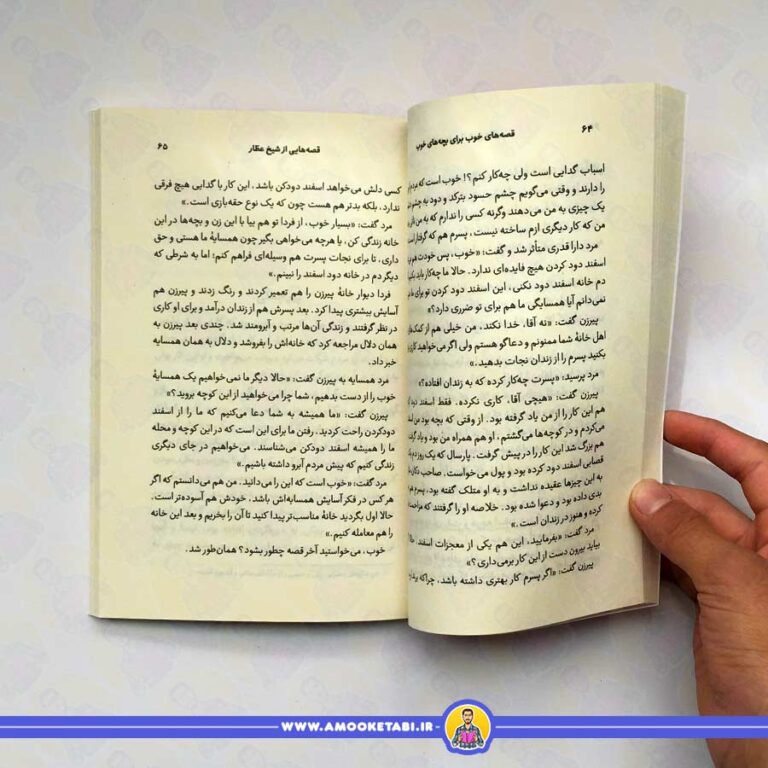 ۶۴
قصه‌های خوب برای بچه‌های خوب
اسباب گدایی است ولی چه‌کار کنم؟! خوب است که مردم
را دارند و وقتی می‌گویم چشم حسود بترکد و دود به چشم
یک چیزی به من می‌دهند وگرنه کسی را ندارم که به من
من که کار دیگری ازم ساخته نیست، پسرم هم که گرفتار است
مرد دارا قدری متأثر شد و گفت: «خوب، پس خودت هم
اسفند دود کردن هیچ فایده‌ای ندارد. حالا ما چه‌کار باید بکنیم
دم خانه اسفند دود نکنی، این اسفند دود کردن تو برای ما
نمی‌دانم آیا همسایگی ما هم برای تو ضرری دارد؟»
پیرزن گفت: «نه آقا، خدا نکند، من خیلی هم از کمک‌های
اهل خانهٔ شما ممنونم و دعاگو هستم ولی اگر می‌خواهید کاری
بکنید پسرم را از زندان نجات بدهید.»
مرد پرسید: «پسرت چه‌کار کرده که به زندان افتاده؟»
پیرزن گفت: «هیچی آقا. کاری نکرده. فقط اسفند دود
هم این کار را از من یاد گرفته بود. از وقتی که بچه بود من
می‌کردم و در کوچه‌ها می‌گشتم، او هم همراه من بود و یاد
هم بزرگ شد این کار را در پیش گرفت. پارسال که یک روز دم
قصابی اسفند دود کرده بود و پول می‌خواست. صاحب دکان
چیزها عقیده نداشت و به او متلک گفته بود، پسرم هم
بدی داده بود و دعوا شده بود. خلاصه او را گرفتند که مزاحمت
کرده و هنوز در زندان است.»
مرد گفت: «بفرمایید، این هم یکی از معجزات اسفند. حالا
بیاید بیرون دست از این کار برمی‌داری؟»
پیرزن گفت: «اگر پسرم کار بهتری داشته باشد، چراکه
قصه‌هایی از شیخ عطار
۶۵
کسی دلش می‌خواهد اسفند دودکن باشد، این کار با گدایی هیچ فرقی
ندارد، بلکه بدتر هم هست چون که یک نوع حقه‌بازی است.»
مرد گفت: «بسیار خوب، از فردا تو هم بیا با این زن و بچه‌ها در این
خانه زندگی کن، یا هرچه می‌خواهی بگیر چون همسایهٔ ما هستی و حق
داری، تا برای نجات پسرت هم وسیله‌ای فراهم کنم؛ اما به شرطی که
دیگر دم در خانه دود اسفند را نبینم.»
فردا دیوار خانهٔ پیرزن را هم تعمیر کردند و رنگ زدند و پیرزن هم
آسایش بیشتری پیدا کرد. بعد پسرش هم از زندان درآمد و برای او کاری
در نظر گرفتند و زندگی آن‌ها مرتب و آبرومند شد. چندی بعد پیرزن به
همان دلال مراجعه کرد که خانه‌اش را بفروشد و دلال به همان همسایه
خبر داد.
مرد همسایه به پیرزن گفت: «حالا دیگر ما نمی‌خواهیم یک همسایهٔ
خوب را از دست بدهیم، شما چرا می‌خواهید از این کوچه بروید؟»
پیرزن گفت: «ما همیشه به شما دعا می‌کنیم که ما را از اسفند
دودکردن راحت کردید. رفتن ما برای این است که در این کوچه و محله
ما را همیشه اسفند دودکن می‌شناسند. می‌خواهیم در جای دیگری
زندگی کنیم که پیش مردم آبرو داشته باشیم.»
مرد گفت: «خوب است که این را می‌دانید. من هم می‌دانستم که اگر
هر کس در فکر آسایش همسایه‌اش باشد، خودش هم آسوده‌تر است.
حالا اول بگردید خانهٔ مناسب‌تر پیدا کنید تا آن را بخریم و بعد این خانه
را هم معامله کنیم.»
خوب، می‌خواستید آخر قصه چطور بشود؟ همان‌طور شد.
WWW.AMOOKETABI.IR